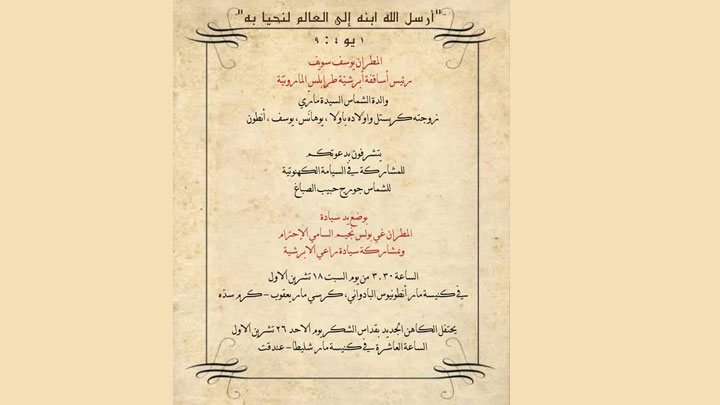 "أرسل الله ابنه إلى العالم لنحيا به"
١ يو ٤ : ٩
المطران يوسف سويف
رئيس أساقفة أبرشيّة طرابلس المارونيّة
والدة الشماس السيدة ماري
زوجته كريستل واولاده باولا ، يوهانس، يوسف ، أنطون
يتشرفون بدعوتكم
للمشاركة في السيامة الكهنوتية
للشماس جورج حبيب الصباغ
بوضع يد سيادة
المطران غي بولس نجيم السامي الإحترام
وبمشاركة سيادة راعي الابرشية
الساعة ٣.٣٠ من يوم السبت ١٨ تشرين الاول
في كنيسة مار أنطونيوس البادواني، كرسي مار يعقوب – كرم سدّه
يحتفل الكاهن الجديد بقداس الشكر يوم الاحد ٢٦ تشرين الاول
الساعة العاشرة في كنيسة مار شليطا – عندقت